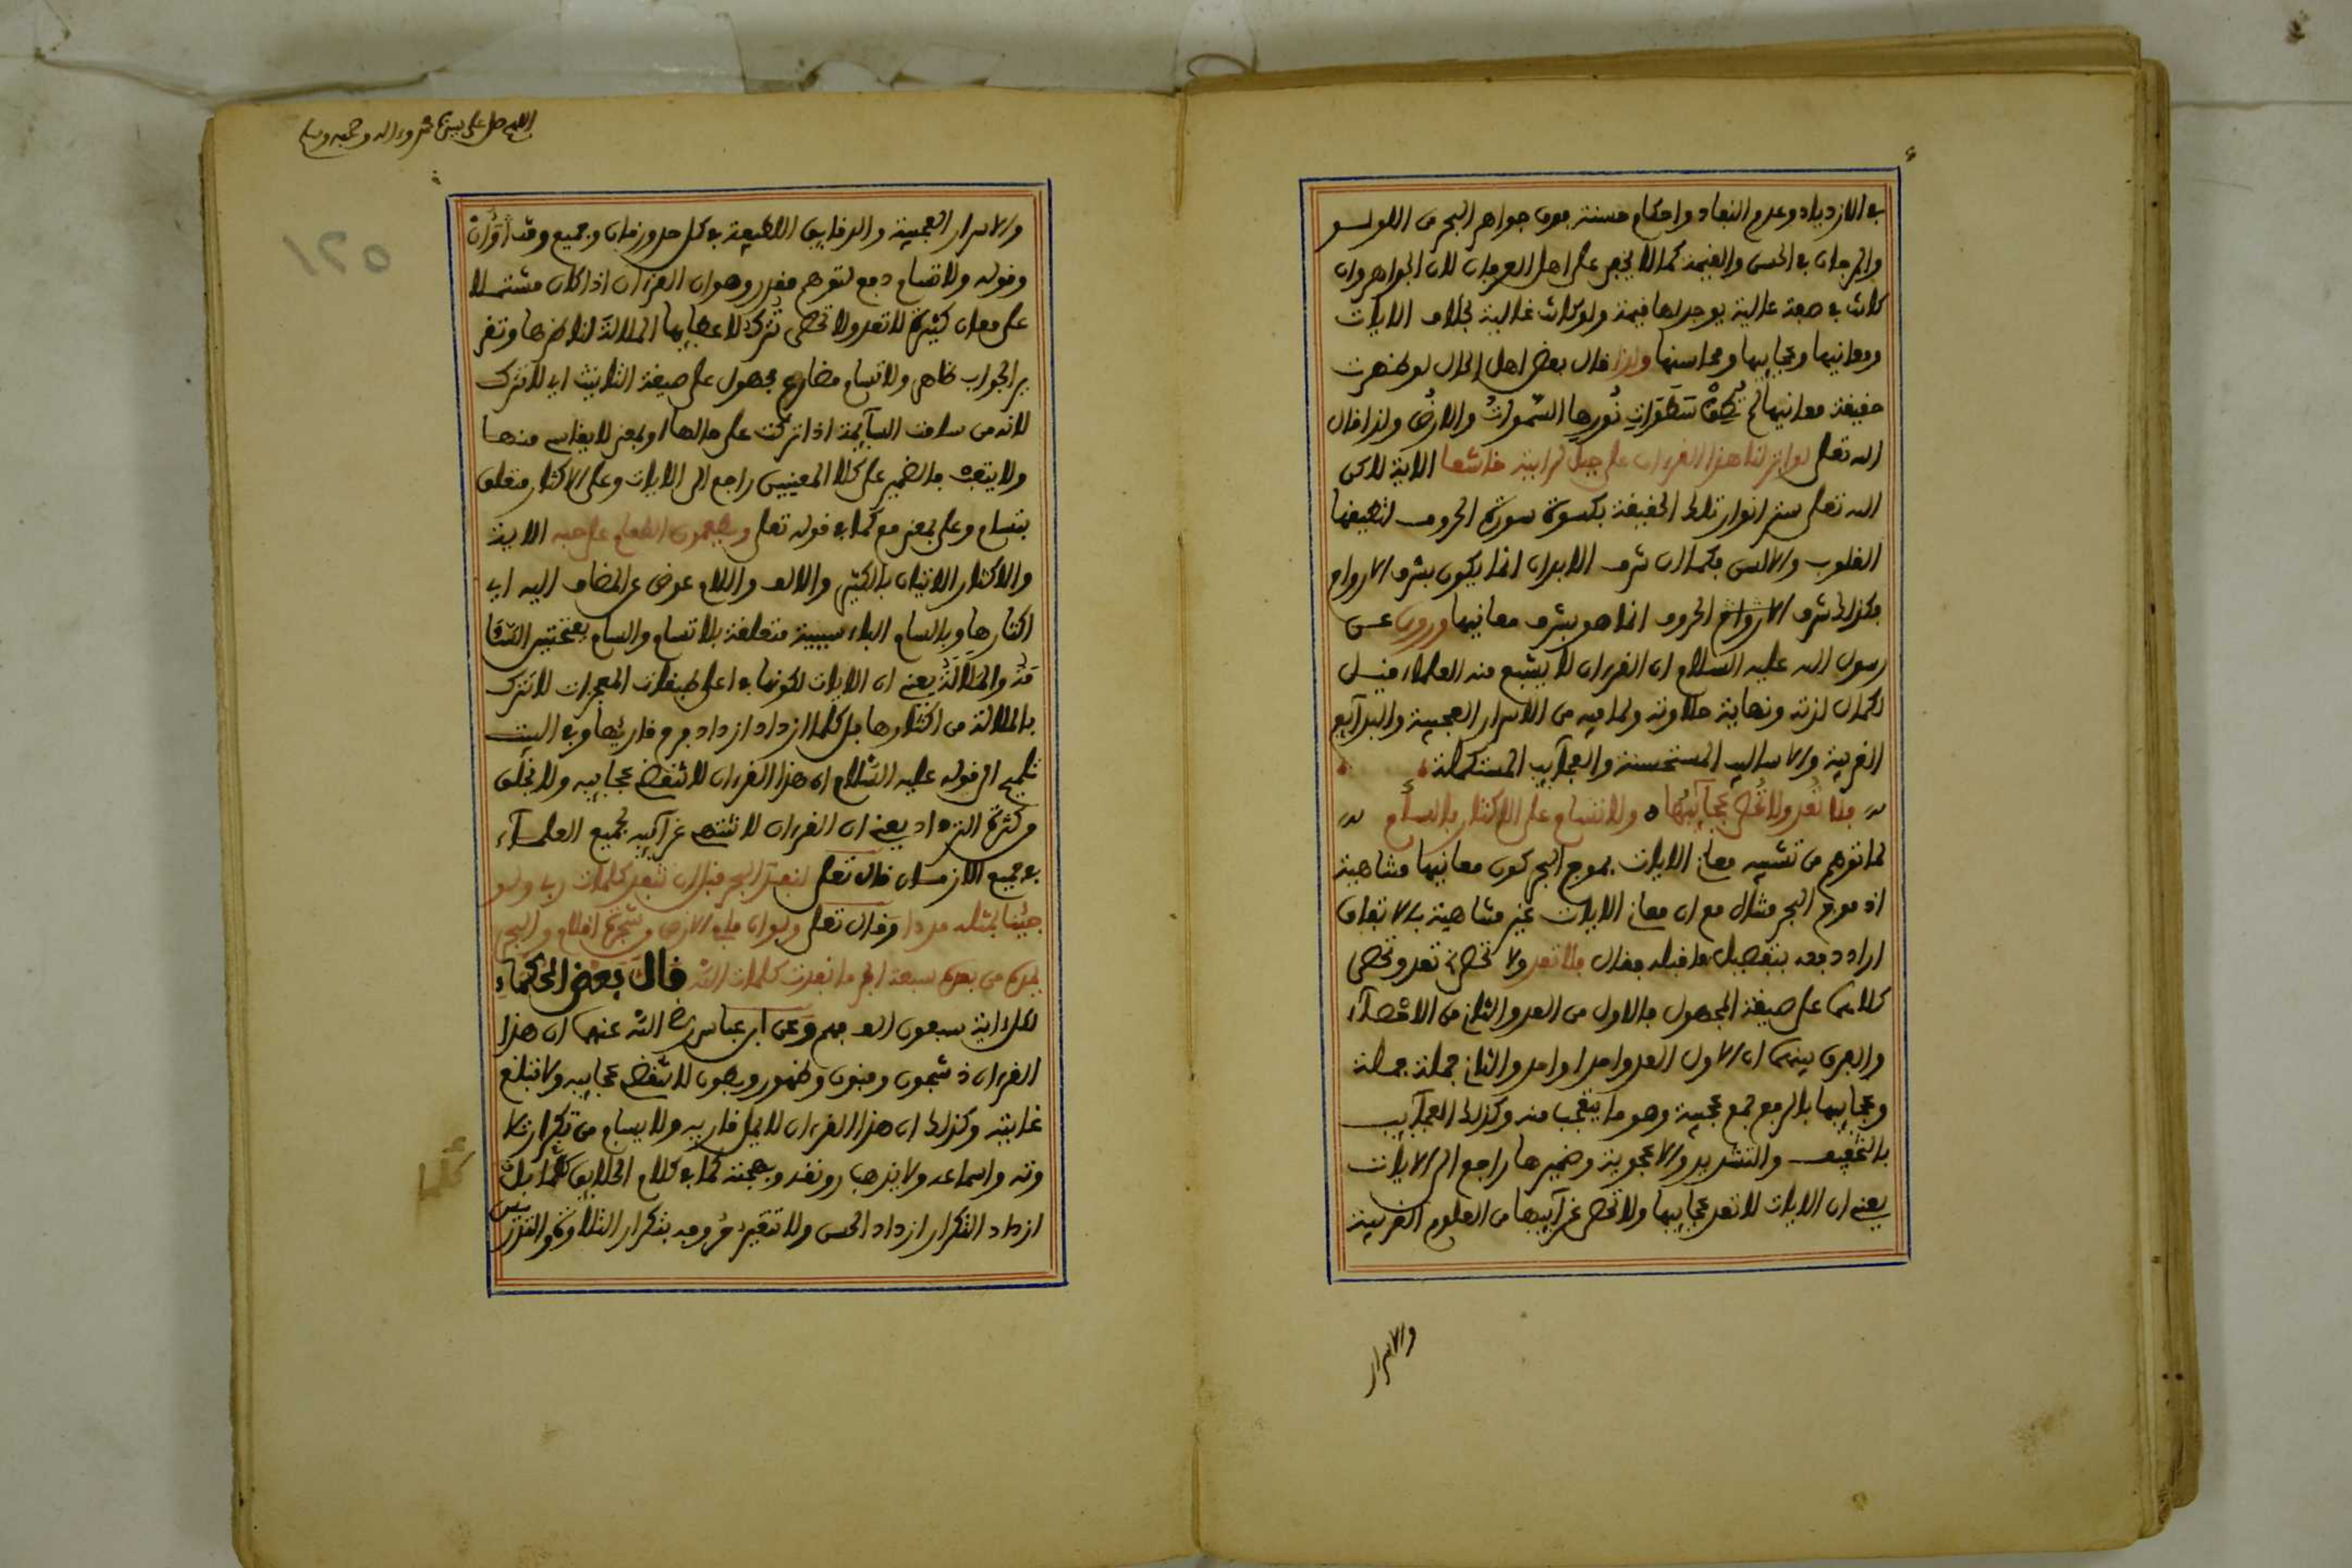 في الازدياد وعدم النفاد واحكام حسنة فوق جواهر البحر من اللؤلؤ
والمرجان في الحسن والقيمة كما لا يخفى على اهل العرفان لان الجواهر وان
كانت في صفة عالية يوجد لها قيمة ولو كانت غالية بخلاف الايات
ومعانيها وعجايبها ومحاسنها ولذا قال بعض اهل الحال لو ظهرت
حقيقة معانيها لم تطق سطوات نورها السموات والارض ولذا قال
الله تعلى لو انزلنا هذا القرءان على جبل لرايته خاشعا الاية لاكن
الله تعلى ستر انوار تلك الحقيقة بكسوة سورة الحروف لتطيقها
القلوب والالسن فكما ان شرف الابدان انما يكون بشرف الارواح
فكذلك شرف الارواح الحروف انما هو بشرف معانيها وروي عن
رسول الله عليه السلام ان القرءان لا يشبع منه العلماء قيل
لكمال لذته ونهاية حلاوته ولما فيه من الاسرار العجيبة والبدآيع
الغريبة والاساليب المستحسنة والعجآيب المستكملة
فلا تعد ولا تحصى عجآئبها ولا تسام على الاكثار بالسأم
لما توهم من تشبيه معاني الايات بموج البحر كون معانيها متناهية
اذ موج البحر متناه مع ان معاني الايات غير متناهية بالاتفاق
اراد دفعه بتفصيل ما قبله فقال فلا تعد ولا تحصى تعد وتحصى
كلاهما على صيغة المجهول فالاول من العد والثاني من الاحصآء
والفرق بينهما ان الاول العد واحدا واحدا والثاني جملة جملة
وعجايبها بالرفع جمع عجيبة وهو ما يتعجب منه وكذلك العجآيب
بالتخفيف والتشديد والاعجوبة وضميرها راجع الى الايات
يعني ان الايات لا تعد عجايبها ولا تحصى غرآيبها من العلوم الغريبة
والاسرار
اللهم صل على سيدنا محمد وءاله وصحبه وسلم
١٢٥
والاسرار العجيبة والدقايق اللطيفة في كل حد وزمان وجميع وقت اوان
وقوله ولا تسام دفع لتوهم مقدر وهو ان القرءان اذا كان مشتملا
على معان كثيرة لا تعد ولا تحصى تترك لاعجابها الملالة لناظرها وتقر
ير الجواب ظاهر ولا تسام مضارع مجهول على صيغة التانيث اي لا تترك
لانه من سامت السآيمة اذا تركت على حالها او بمعنى لا يقاسى منها
ولا يتعب فالضمير على كلا المعنيين راجع الى الايات وعلى الاكثار متعلق
بتسام وعلى بمعنى مع كما في قوله تعلى ويطعمون الطعام على حبه الاية
والاكثار الاتيان بالكثير والالف واللام عوض عن المضاف اليه اي
اكثارها وبالسام الباء سببية متعلقة بلا تسام والسام بفتحتين السآ
مة والملالة يعني ان الايات لكونها في اعلى طبقات المعجزات لا تترك
بالملالة من اكثارها بل كلما ازداد ازداد فرح قاريها وفي البيت
تلميح الى قوله عليه السلام ان هذا القرءان لا تنقضي عجايبه ولا يخلق
من كثرة الترداد يعني ان القرءان لا تنتهي غرآيبه لجميع العلمآء
في جميع الازمان قال تعلى لنفد البحر قبل ان تنفد كلمات ربي ولو
جئنا بمثله مددا وقال تعلى ولو ان ما في الارض من شجرة اقلام والبحر
يمده من بعده سبعة ابحر ما نفدت كلمات الله قال بعض الحكماء
لكل اية سبعون الف فهم وعن ابن عباس رضي الله عنهما ان هذا
القرءان ذو شجون وفنون وظهور وبطون لا تنقضي عجايبه ولا تبلغ
غايته وكذلك ان هذا القرءان لا يمل قاريه ولا يسام من تكرار تلا
وته واسماعه ولا يذهب رونقه وبهجته كما في كلام الخلايق كلما بل
ازداد التكرار ازداد الحسن ولا تتغير حروفه بتكرار التلاوة والتدر
يس
كلما